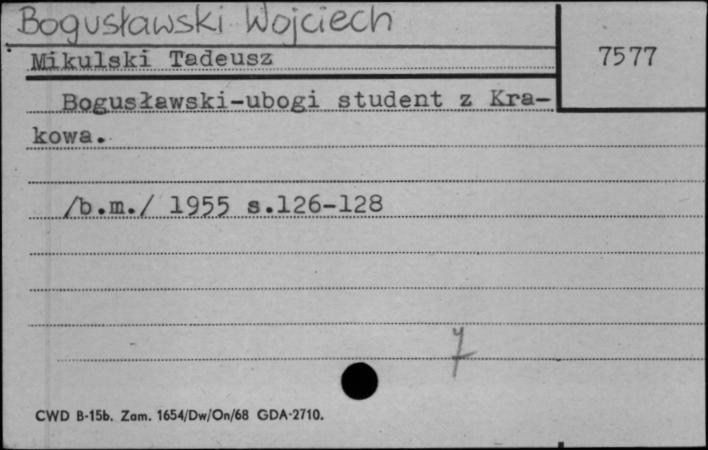 Bogusławski Wojciech
Mikulski Tadeusz
7577
Bogusławski-ubogi student z Kra-
kowa.
/b.m./ 1955 s.126-128
7
CWD B-15b. Zam. 1654/Dw/On/68 GDA-2710.